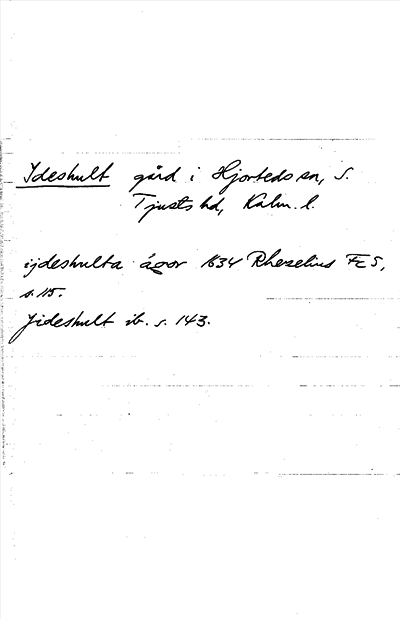 Ydeshult gård i Hjorteds sn, S.
Tjusts hd, Kalm. l.
ijdeshulta ägor 1634 Rhezelius Fc5,
s. 115.
Jideshult ib. s. 143.